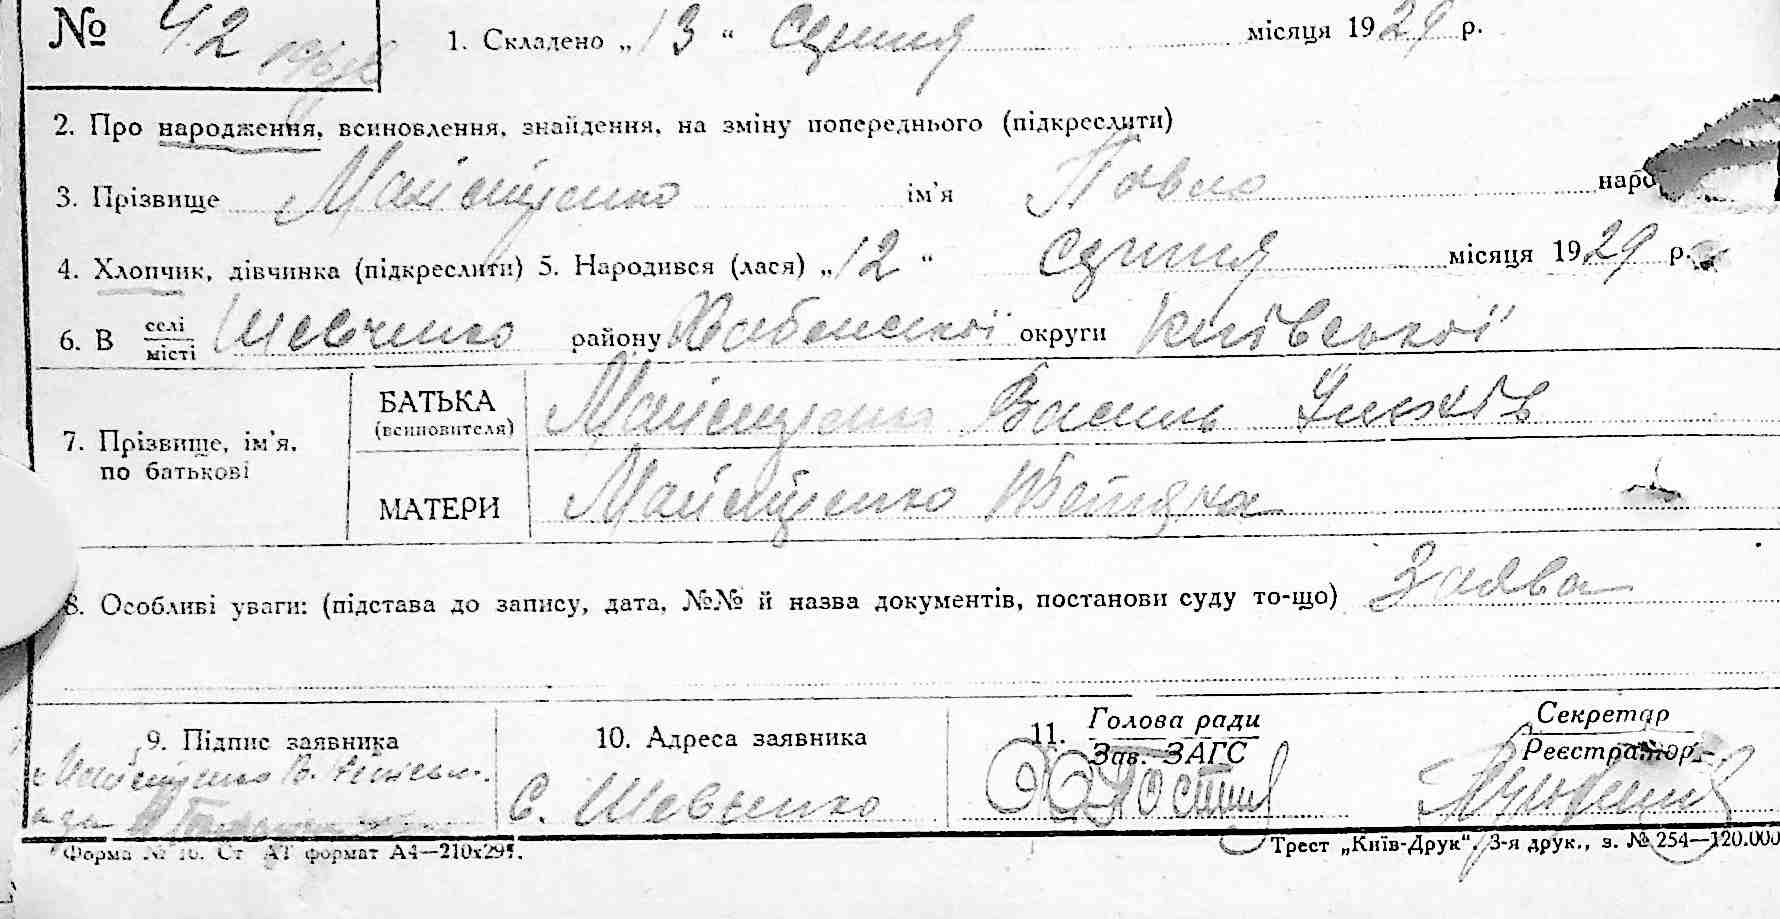 № 42
1. Складено „13“ серпня місяця 1929 р.
2. Про народження, всиновлення, знайдення, на зміну попереднього (підкреслити)
3. Прізвище Майстренко ім'я Павло наро
4. Хлопчик, дівчинка (підкреслити) 5. Народився (лася) „12“ серпня місяця 1929 р.
6. В селі/місті Шевченко району Хабенської округи Київської
7. Прізвище, ім'я, по батькові
БАТЬКА (всиновителя) Василь
МАТЕРИ
8. Особливі уваги: (підстава до запису, дата, №№ й назва документів, постанови суду то-що) Заява
9. Підпис заявника
10. Адреса заявника
с. Шевченко
11. Голова ради
Зав. ЗАГС
Секретар
Реєстратор
Форма № 16. Ст. АТ формат А4—210х297.
Трест „Київ-Друк“, 3-я друк., з. № 254—120.000